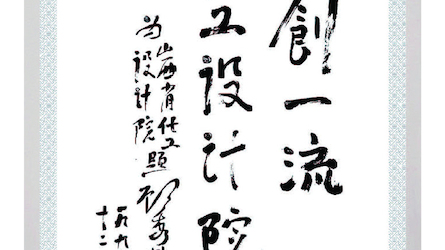 創一流
工设计院
为山西省化工
设计院题
一九九
十二